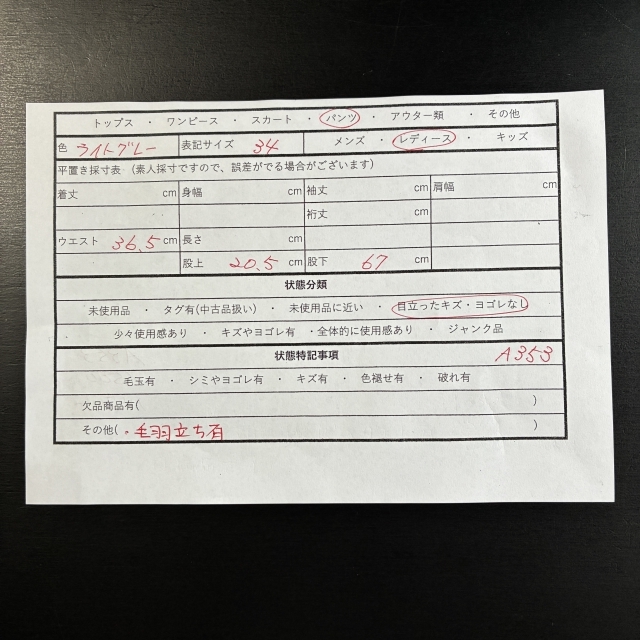 トップス ・ ワンピース ・ スカート ・ パンツ ・ アウター類 ・ その他
色 ライトグレー 表記サイズ 34 メンズ ・ レディース ・ キッズ
平置き採寸表 (素人採寸ですので、誤差がでる場合がございます)
着丈 cm 身幅 cm 袖丈 cm 肩幅 cm
裄丈 cm
ウエスト 36.5 cm 長さ cm
股上 20.5 cm 股下 67 cm
状態分類
未使用品 ・ タグ有(中古品扱い) ・ 未使用品に近い ・ 目立ったキズ・ヨゴレなし
少々使用感あり ・ キズやヨゴレ有 ・全体的に使用感あり ・ ジャンク品
状態特記事項 A353
毛玉有 ・ シミやヨゴレ有 ・ キズ有 ・ 色褪せ有 ・ 破れ有
欠品商品有( )
その他( ・毛羽立ち有 )